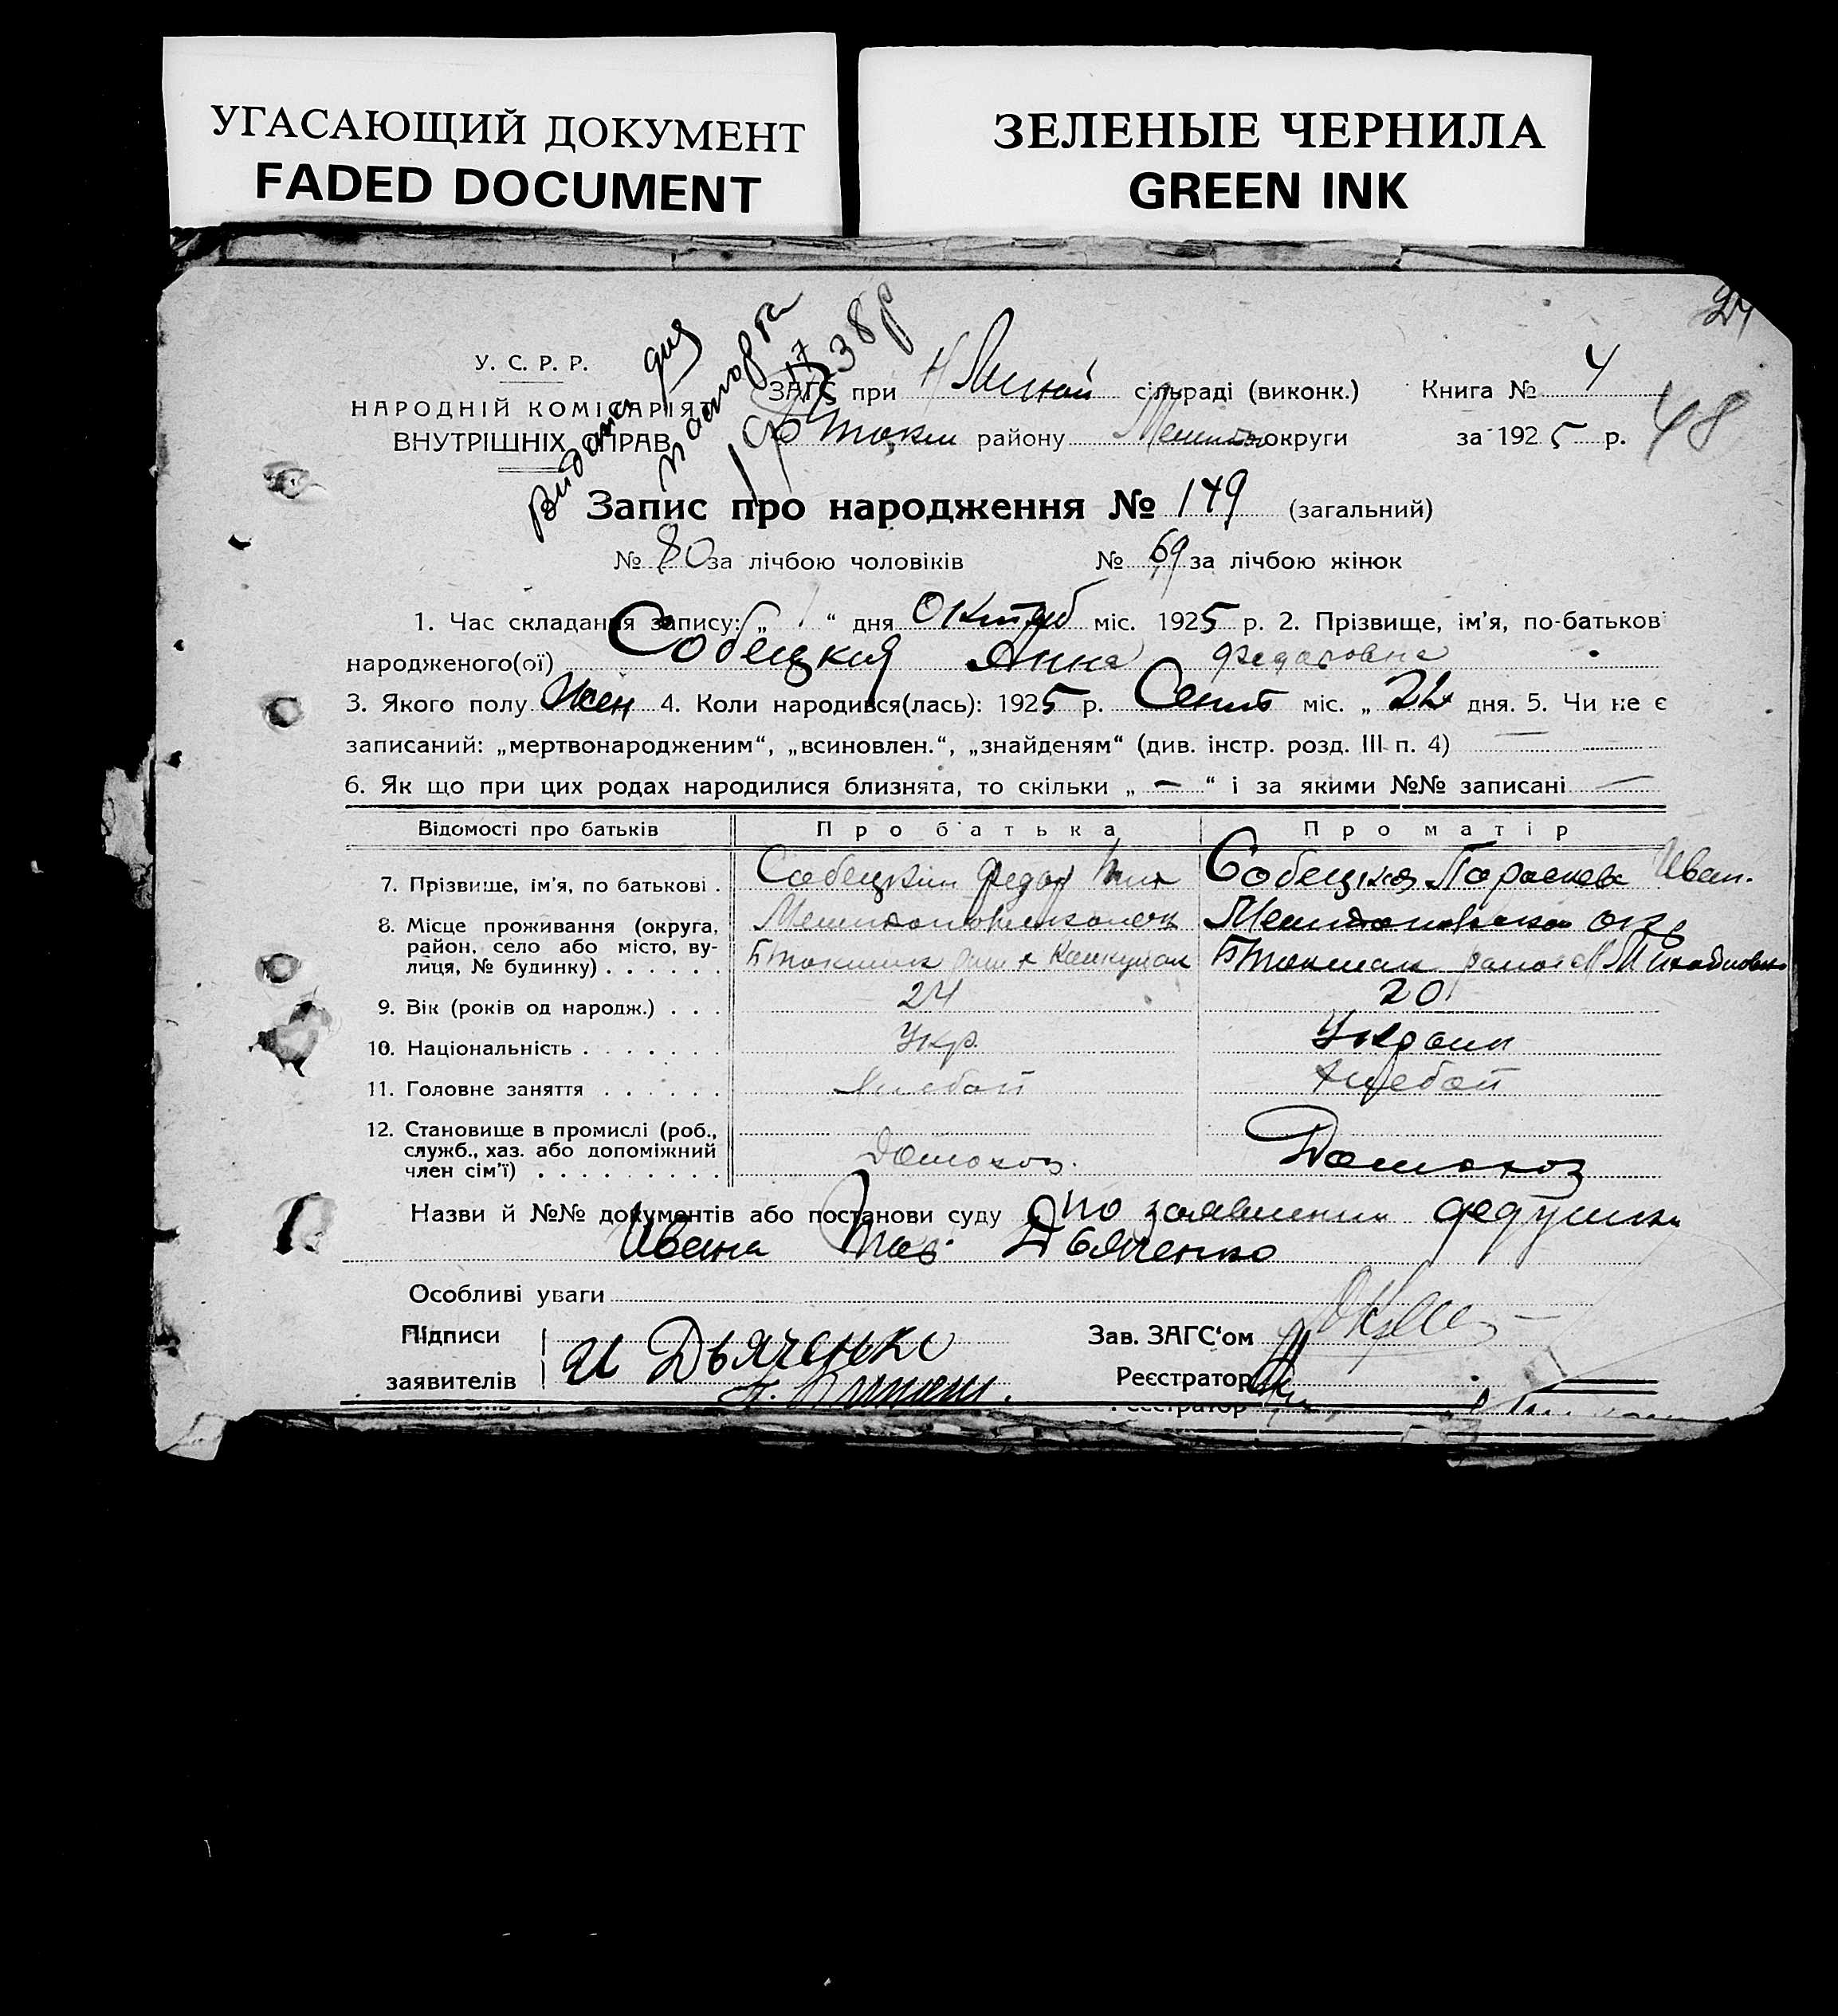 УГАСАЮЩИЙ ДОКУМЕНТ
FADED DOCUMENT
ЗЕЛЕНЫЕ ЧЕРНИЛА
GREEN INK
У. С. Р. Р.
НАРОДНІЙ КОМІСАРІЯТ
ВНУТРІШНІХ СПРАВ
Видано для
паспорта
ЗАГС при сільраді (виконк.) Книга № 4
району округи за 1925 р. 48
Запис про народження № 149 (загальний)
№ 80 за лічбою чоловіків № 69 за лічбою жінок
1. Час складання запису: „ 1 “ дня Октяб міс. 1925 р. 2. Прізвище, ім’я, по-батьков
народженого(ої) Собецкая Анна Федоровна
3. Якого полу Жен 4. Коли народився(лась): 1925 р. Сент міс. „ дня. 5. Чи не є
записаний: „мертвонародженим“, „всиновлен.“, „знайденям“ (див. інстр. розд. III п. 4)
6. Як що при цих родах народилися близнята, то скільки „ — “ і за якими №№ записані —
Відомості про батьків Про батька Про матір
7. Прізвище, ім’я, по батькові . Собецкий Федор Собецкая Параскева Иван.
8. Місце проживання (округа,
район, село або місто, ву-
лиця, № будинку) . . . . . .
9. Вік (років од народж.) . . . 24 20
10. Національність . . . . . . . Укр. Украин
11. Головне заняття . . . . . . Хлебоп Хлебоп
12. Становище в промислі (роб.,
служб., хаз. або допоміжний
член сім’ї) . . . . . . . . . Домохоз. Домохоз
Назви й №№ документів або постанови суду по заявлению дедушки
Ивана Дьяченко
Особливі уваги
Підписи И Дьяченко Зав. ЗАГС‘ом
заявителів Реєстратор